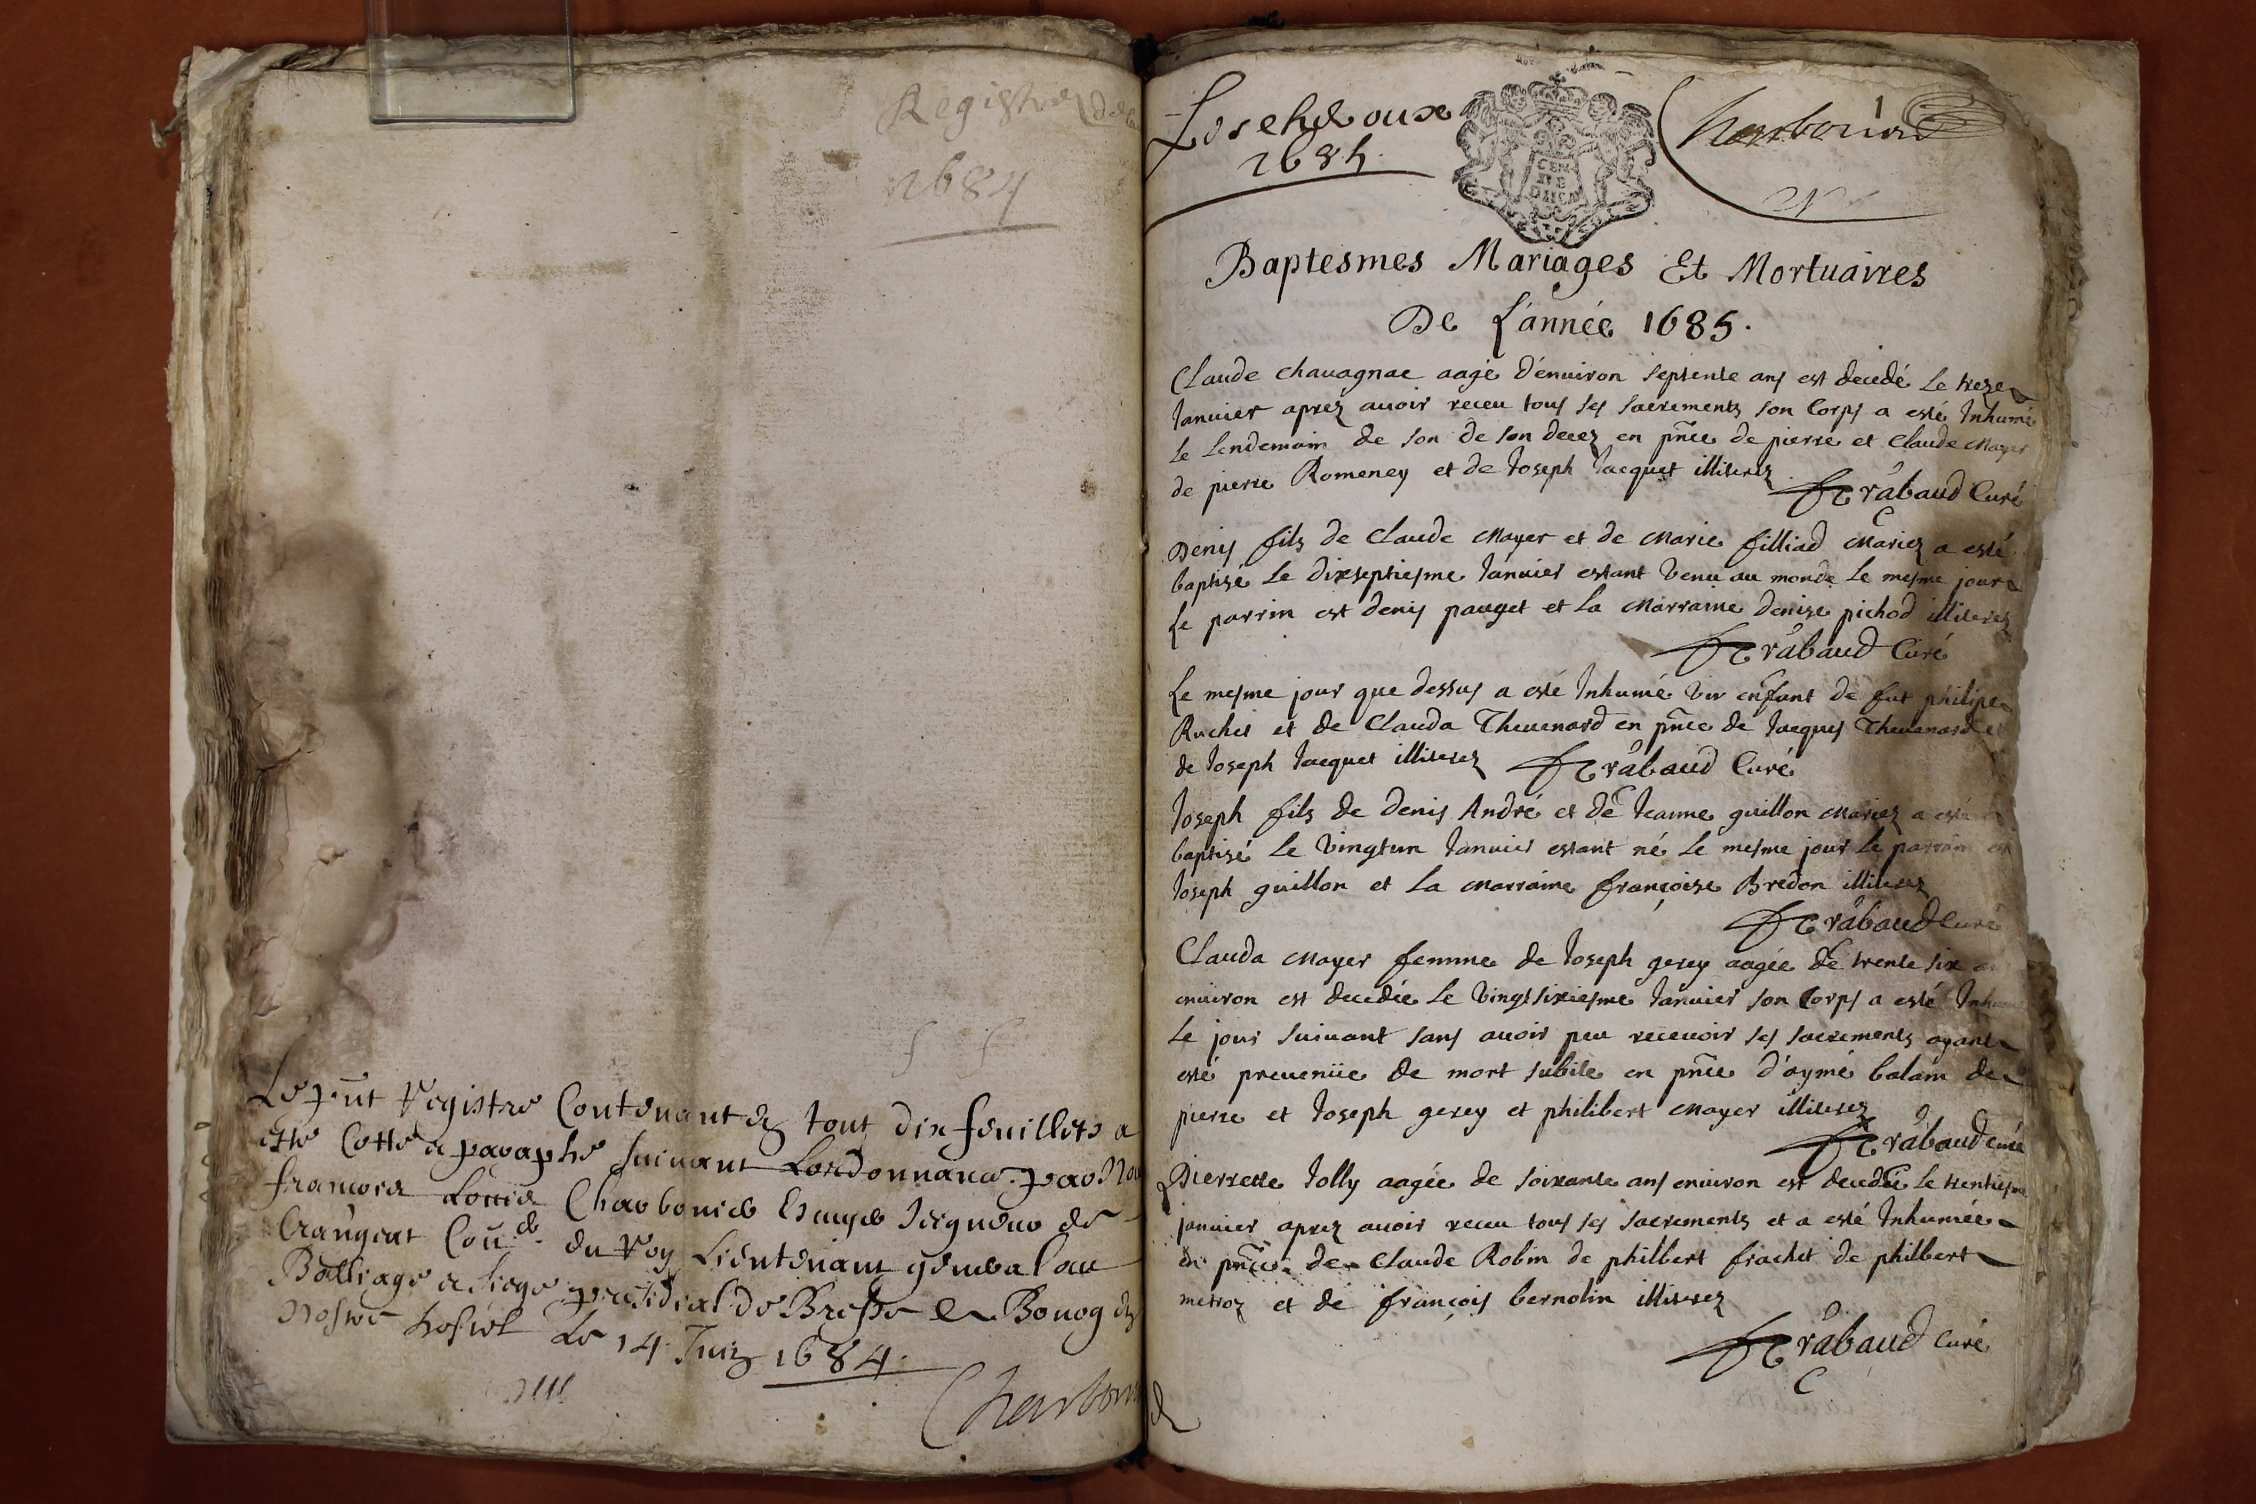 Registre de
1684
Le pnt Registre Contenant en tout dix feuillets a
esté Cotté et paraphé suivant Lordonnance par Nou
françois Louis Charbonier Escuyer Seigneur de
Crangeat Con.er du Roy Lieutenant general au
Balliage et siege presidial de Bresse en Bourg en
Nostre hostel Le 14 Juin 1684.
Charbonnier
1684
Charbonier
Baptesmes Mariages Et Mortuaires
De L'année 1685.
Claude chauagnac aagé d'enuiron septente ans est decedé Le treze
Januier aprez auoir receu tous ses sacrements son Corps a esté Inhumé
Le Lendemain de son de son decez en pnce de pierre et Claude Mayer
de pierre Romeney et de Joseph Jacquet illiterez
Trabaud Curé
Denis fils de Claude Mayer et de Marie filliad Mariez a esté
baptizé Le dixseptiesme Januier estant Venu au monde Le mesme jour
Le parrin est denis pauget et La Marraine denize pichod illiterez
Trabaud Curé
Le mesme jour que dessus a esté Inhumé Vn enfant de fut philipe
Ruchet et de Clauda Theuenard en pnce de Jacques Theuenard et
de Joseph Jacquet illiterez Trabaud Curé
Joseph fils de denis André et de Jeanne guillon Mariez a esté
baptizé Le Vingtun Januier estant né Le mesme jour Le parrin est
Joseph guillon et La Marraine françoize Bredon illiterez
Trabaud Curé
Clauda Mayer femme de Joseph gerey aagée de trente six
enuiron est decedée Le Vingtsixiesme Januier son Corps a esté Inhumé
Le jour suiuant sans auoir peu receuoir ses sacrements ayant
esté preuenüe de mort subite en pnce d'aymé balam de
pierre et Joseph gerey et philibert Mayer illiterez
Trabaud Curé
Pierrette Jolly aagée de soixante ans enuiron est decedée Le trentiesme
januier aprez auoir receu tous ses sacrements et a esté Inhumée
en pnce de Claude Robin de philbert frachet de philbert
metroz et de françois bernolin illiterez
Trabaud Curé